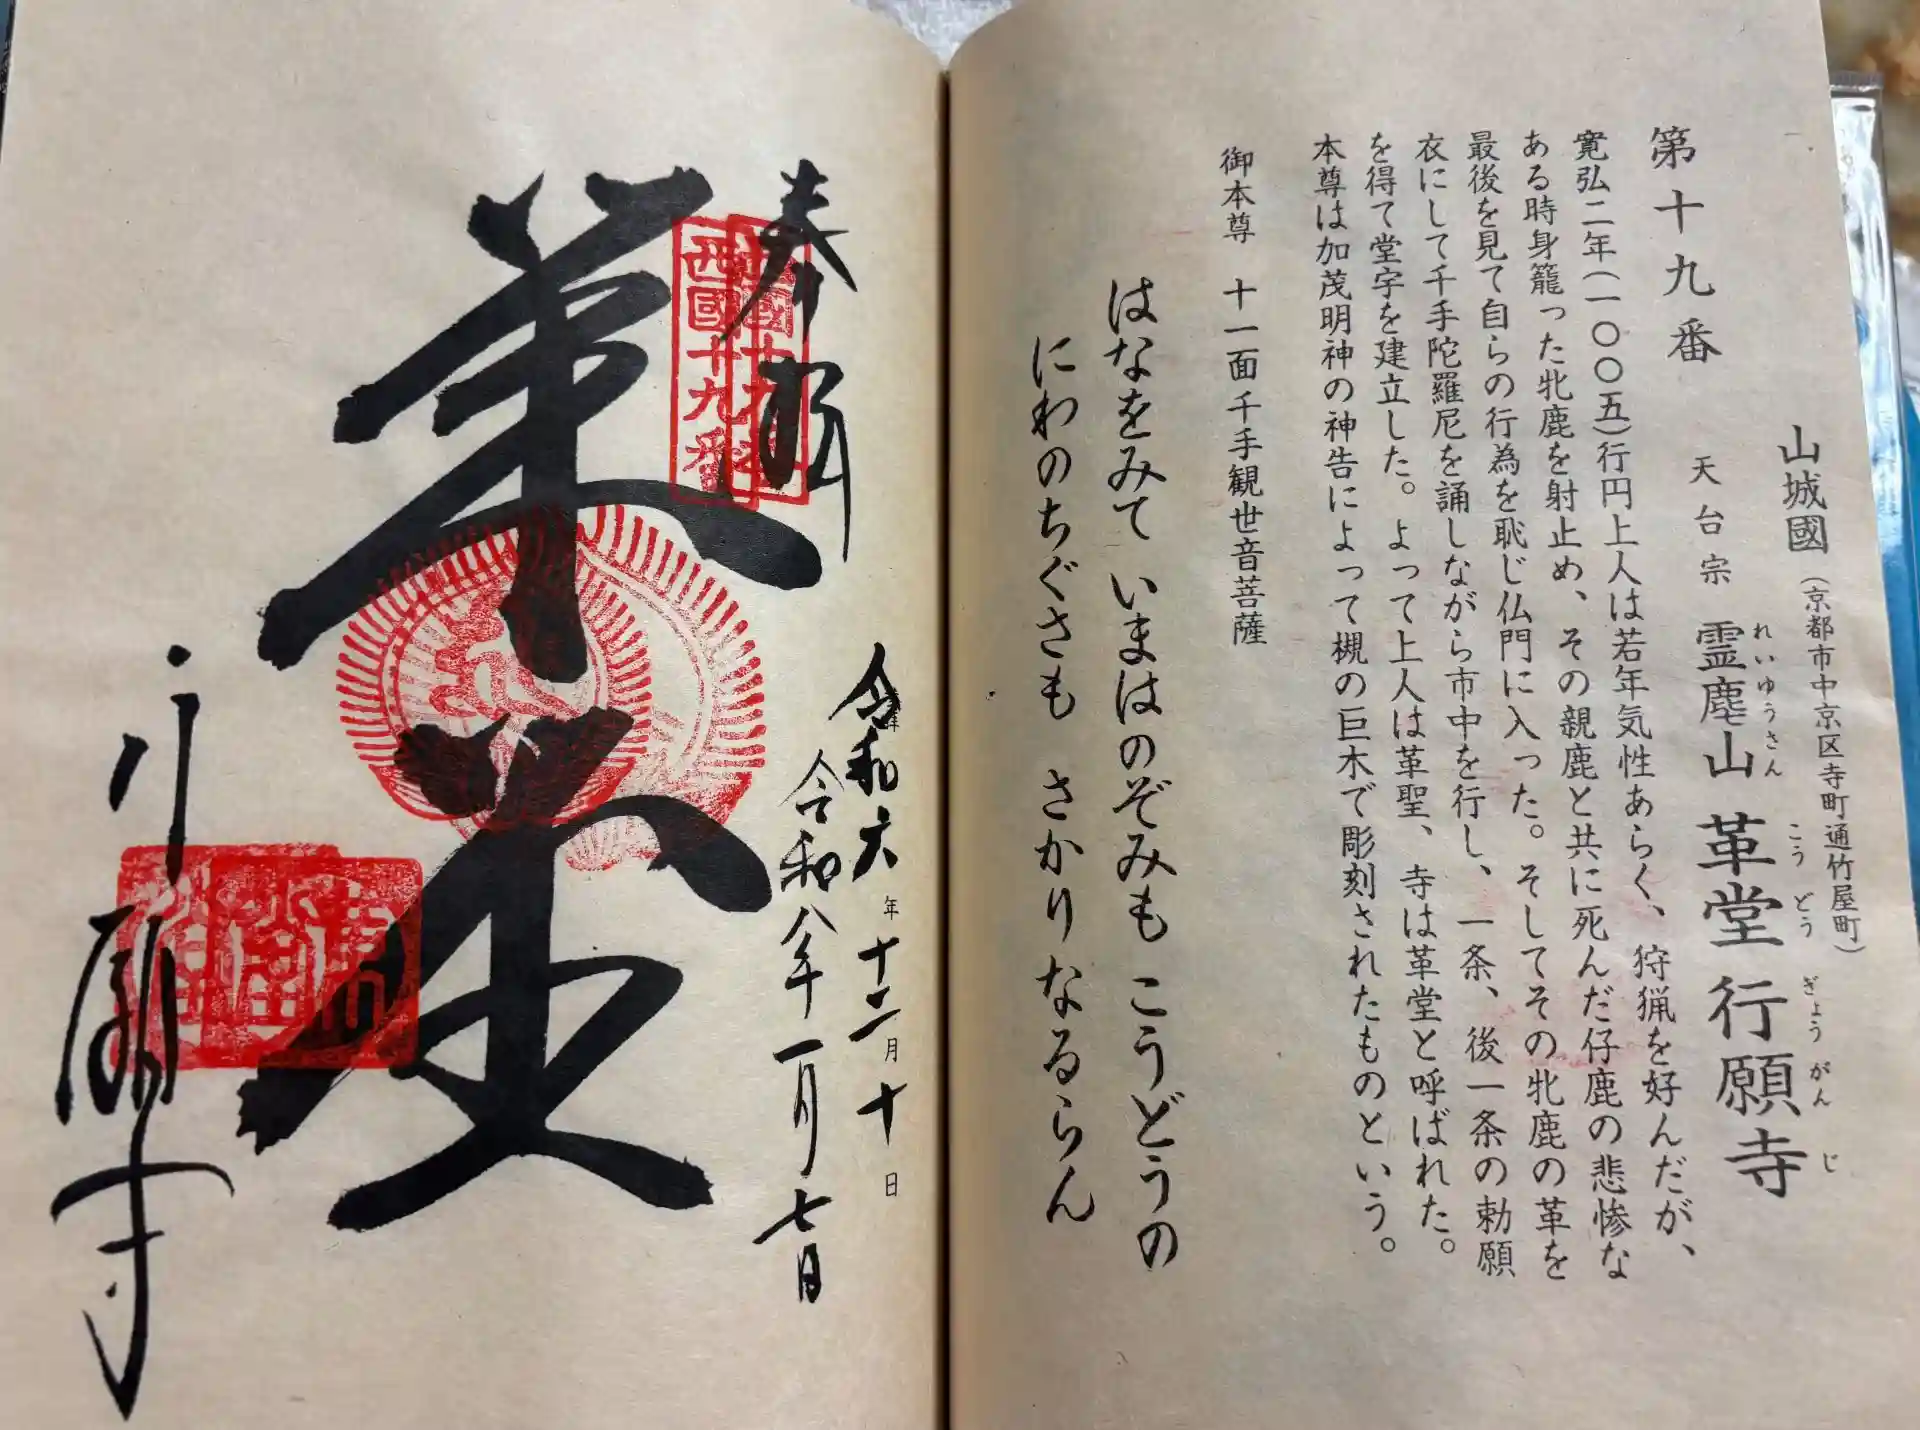 山城國（京都市中京区寺町通竹屋町）
第十九番 天台宗 霊麀山 革堂行願寺
れいゆうさん こうどう ぎょうがんじ
寛弘二年（一〇〇五）行円上人は若年気性あらく、狩猟を好んだが、
ある時身籠った牝鹿を射止め、その親鹿と共に死んだ仔鹿の悲惨な
最後を見て自らの行為を恥じ仏門に入った。そしてその牝鹿の革を
衣にして千手陀羅尼を誦しながら市中を行し、一条、後一条の勅願
を得て堂宇を建立した。よって上人は革聖、寺は革堂と呼ばれた。
本尊は加茂明神の神告によって槻の巨木で彫刻されたものという。
御本尊 十一面千手観世音菩薩
はなをみて いまはのぞみも こうどうの
にわのちぐさも さかりなるらん
奉拝
令和六年十二月十日
令和八年一月七日
西國十九番
革堂
行願寺